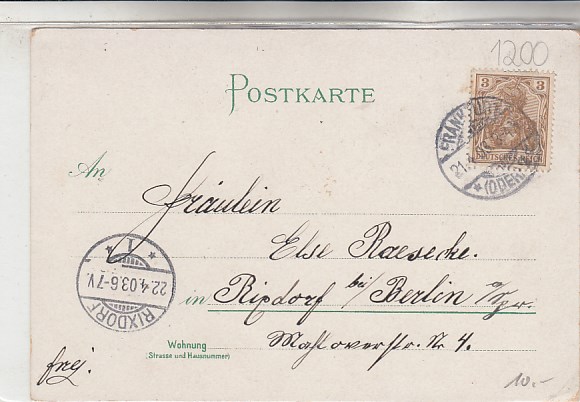 1200
POSTKARTE
3 3
DEUTSCHES REICH
FRANKFURT
(ODER)
An
Fräulein
Else Raesecke.
in Rixdorf bei/ Berlin
Wohnung
(Strasse und Hausnummer)
Mahlowerstr. Nr 4.
RIXDORF
22.4.03.6-7V.
1
frei.
10.-